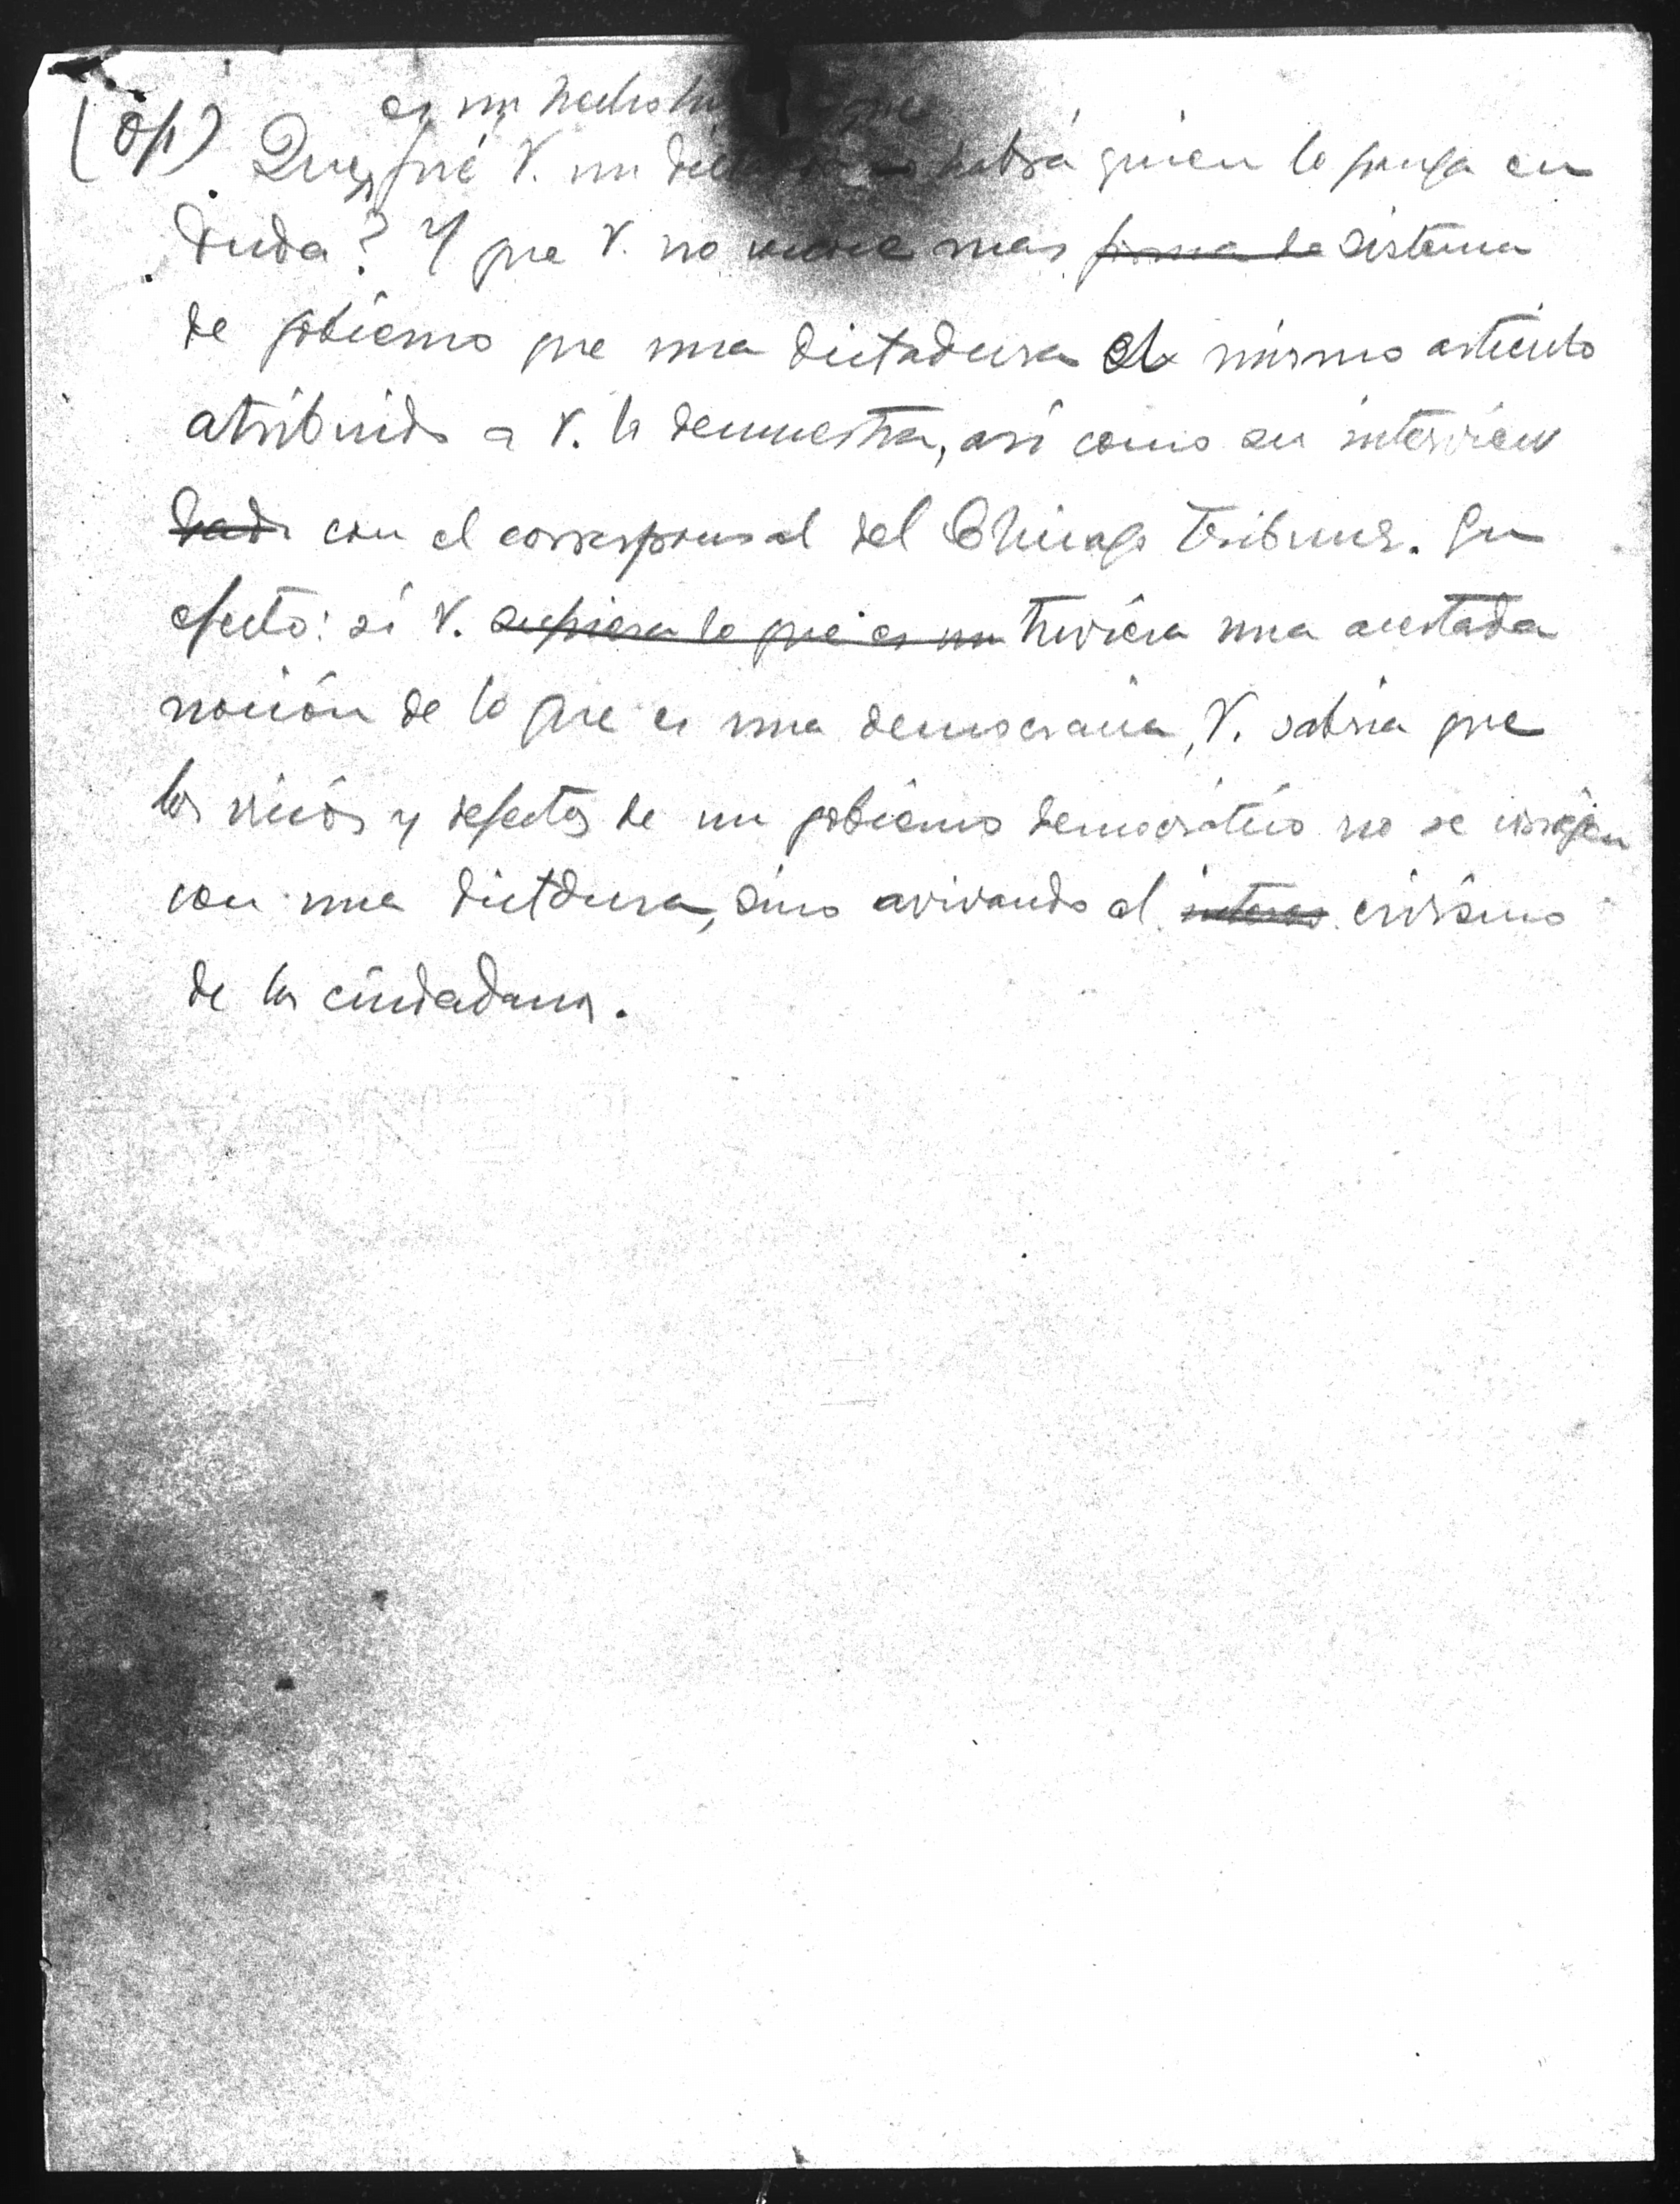 (Óp)
es un hecho que
Que fué V. un habrá quien lo ponga en
duda? Y que V. no mas forma de sistema
de gobierno que una dictadura el mismo artículo
atribuido a V. lo demuestra, así como su interview
dada con el corresponsal del Chicago Tribune. En
efecto: si V. supiera lo que es un tuviera una acertada
noción de lo que es una democracia, V. sabría que
los vicios y defectos de un gobierno democrático no se corrigen
con una dictdura, sino avivando el interes civismo
de los ciudadanos.